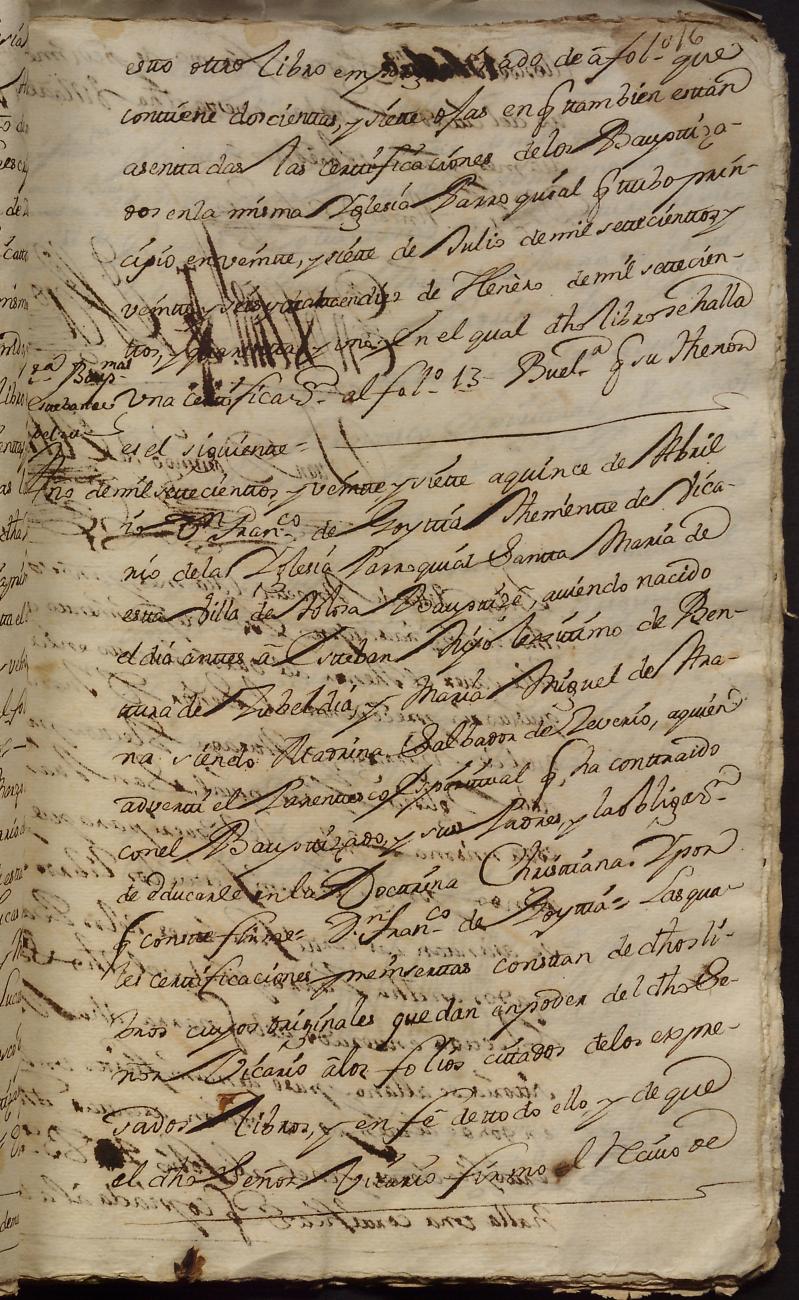 16
esto otro libro ado de â folº que
contiene doscientas, y siete ojas en q tambien estan
asenttadas las certificaciones delos Bauptiza-
dos enla misma Yglesia Parroquial q tubo prin-
cipio, en veintte, y siete de Julio demil settecienttos y
veintte, y seis, y en diez de Henèro de mil settecien-
ttos, y quarentta, y uno, En el qual dho libro se halla
una certificazon al folº 13 Bueltª q su thenor
es el siguiente=
Bapmo
Año de mil settecienttos, y veintte y siete a quince de Abril
io Dn Franco de Goyttia Theniente de Vica-
rio dela Yglesia Parroquial Santta Maria de
estta Villa de Tolosa Bauptizè, auiendo nacido
el dia anttes â Esteban Hijo lexitimo de Ben-
ttura de Yrebeldia, y Maria Miguel de Ara-
na siendo Padrino Salbador de Zeverio, aquien
advertti el Parentesco Spiritual q, ha contraido
conel Bauptizado, y sus Padres, y la obligazon
de educarle en la Docttrina Christtiana. Y por
q constte firme= Dn Franco de Goyttia= Las qua-
les certtificaciones preinserttas consttan de dhos li-
bros cuyos originales quedan en poder del dho Se-
ñor Vicario âlos folios cittados delos expre-
sados libros, y en feê de ttodo ello, y de que
el dho Señor Vicario firmo el Reciuo de